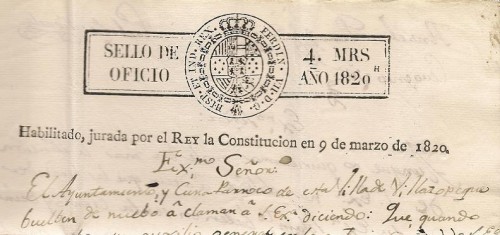 SELLO DE
OFICIO
HISP. ET IND. REX FERDIN. VII. D. G.
4. MRS
AÑO 1820
Habilitado, jurada por el REY la Constitucion en 9 de marzo de 1820.
Exmo Señor
El Ayuntamiento, y Cura Parroco de esta Villa de Villazopeque
buelben de nuebo á clamar á S. Exa. diciendo: Que quando